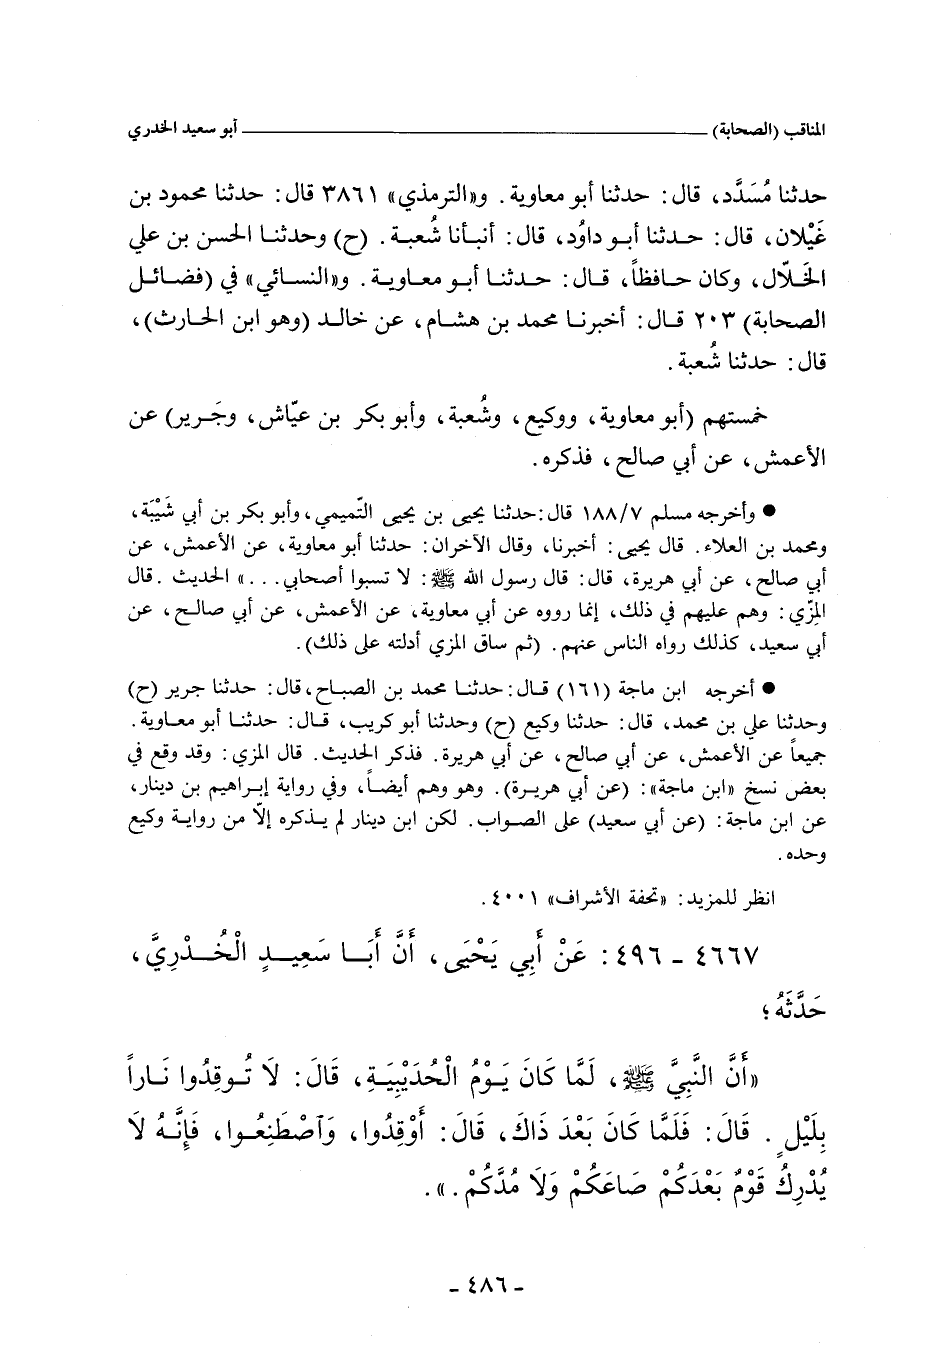 المناقب (الصحابة) ـــــــــــــــــــــــــــــــــ أبو سعيد الخدري
حدثنا مُسَدَّد، قال: حدثنا أبو معاوية. و«الترمذي» ٣٨٦١ قال: حدثنا محمود بن
غَيْلان، قال: حدثنا أبو داوُد، قال: أنبأنا شُعبة. (ح) وحدثنا الحسن بن علي
الخَلّال، وكان حافظاً، قال: حدثنا أبو معاوية. و«النسائي» في (فضائل
الصحابة) ٢٠٣ قال: أخبرنا محمد بن هشام، عن خالد (وهو ابن الحارث)،
قال: حدثنا شُعبة.
خمستهم (أبو معاوية، ووكيع، وشُعبة، وأبو بكر بن عيّاش، وجَرير) عن
الأعمش، عن أبي صالح، فذكره.
● وأخرجه مسلم ١٨٨/٧ قال: حدثنا يحيى بن يحيى التّميمي، وأبو بكر بن أبي شَيْبَة،
ومحمد بن العلاء. قال يحيى: أخبرنا، وقال الآخران: حدثنا أبو معاوية، عن الأعمش، عن
أبي صالح، عن أبي هريرة، قال: قال رسول الله ﷺ: لا تسبوا أصحابي...» الحديث. قال
المِزّي: وهم عليهم في ذلك، إنما رووه عن أبي معاوية، عن الأعمش، عن أبي صالح، عن
أبي سعيد، كذلك رواه الناس عنهم. (ثم ساق المزي أدلته على ذلك).
● أخرجه ابن ماجة (١٦١) قال: حدثنا محمد بن الصباح، قال: حدثنا جرير (ح)
وحدثنا علي بن محمد، قال: حدثنا وكيع (ح) وحدثنا أبو كريب، قال: حدثنا أبو معاوية.
جميعاً عن الأعمش، عن أبي صالح، عن أبي هريرة. فذكر الحديث. قال المزي: وقد وقع في
بعض نسخ «ابن ماجة»: (عن أبي هريرة). وهو وهم أيضاً، وفي رواية إبراهيم بن دينار،
عن ابن ماجة: (عن أبي سعيد) على الصواب. لكن ابن دينار لم يذكره إلّا من رواية وكيع
وحده.
انظر للمزيد: «تحفة الأشراف» ٤٠٠١.
٤٦٦٧ - ٤٩٦: عَنْ أَبِي يَحْيَى، أَنَّ أَبَا سَعِيدٍ الْخُدْرِيَّ،
حَدَّثَهُ؛
«أَنَّ النَّبِيَّ ﷺ، لَمَّا كَانَ يَوْمُ الْحُدَيْبِيَةِ، قَالَ: لَا تُوقِدُوا نَاراً
بِلَيْلٍ. قَالَ: فَلَمَّا كَانَ بَعْدَ ذَاكَ، قَالَ: أَوْقِدُوا، وَٱصْطَنِعُوا، فَإِنَّهُ لَا
يُدْرِكُ قَوْمٌ بَعْدَكُمْ صَاعَكُمْ وَلَا مُدَّكُمْ.».
- ٤٨٦ -